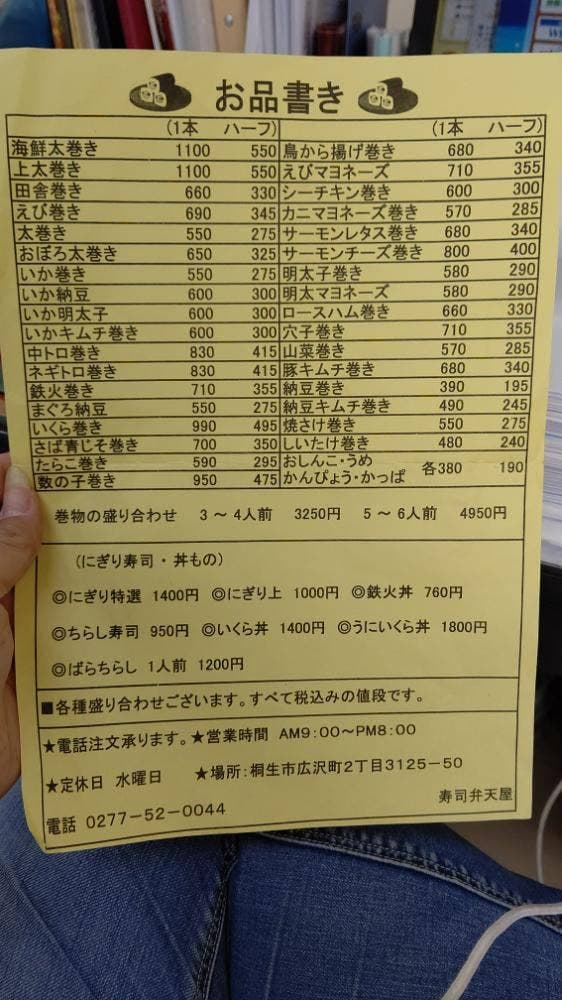 お品書き
(1本 ハーフ) (1本 ハーフ)
海鮮太巻き 1100 550 鳥から揚げ巻き 680 340
上太巻き 1100 550 えびマヨネーズ 710 355
田舎巻き 660 330 シーチキン巻き 600 300
えび巻き 690 345 カニマヨネーズ巻き 570 285
太巻き 550 275 サーモンレタス巻き 680 340
おぼろ太巻き 650 325 サーモンチーズ巻き 800 400
いか巻き 550 275 明太子巻き 580 290
いか納豆 600 300 明太マヨネーズ 580 290
いか明太子 600 300 ロースハム巻き 660 330
いかキムチ巻き 600 300 穴子巻き 710 355
中トロ巻き 830 415 山菜巻き 570 285
ネギトロ巻き 830 415 豚キムチ巻き 680 340
鉄火巻き 710 355 納豆巻き 390 195
まぐろ納豆 550 275 納豆キムチ巻き 490 245
いくら巻き 990 495 焼さけ巻き 550 275
さば青じそ巻き 700 350 しいたけ巻き 480 240
たらこ巻き 590 295 おしんこ・うめ 各380 190
数の子巻き 950 475 かんぴょう・かっぱ
巻物の盛り合わせ 3～4人前 3250円 5～6人前 4950円
(にぎり寿司・丼もの)
◎にぎり特選 1400円 ◎にぎり上 1000円 ◎鉄火丼 760円
◎ちらし寿司 950円 ◎いくら丼 1400円 ◎うにいくら丼 1800円
◎ばらちらし 1人前 1200円
■各種盛り合わせございます。すべて税込みの値段です。
★電話注文承ります。★営業時間 AM9:00～PM8:00
★定休日 水曜日 ★場所:桐生市広沢町2丁目3125-50
電話 0277-52-0044 寿司弁天屋